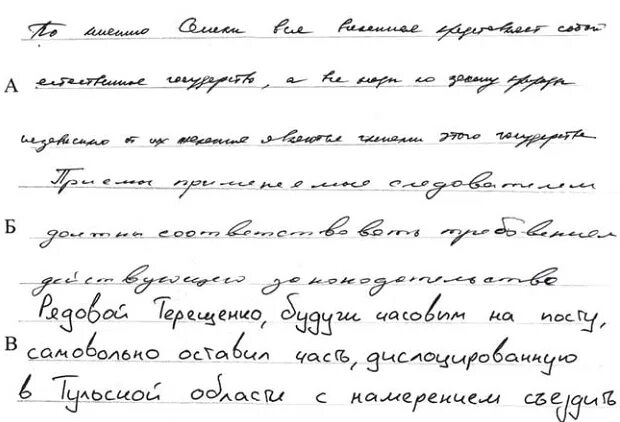 По мнению Сенеки вся вселенная представляет собой
А естественное государство, а все люди по закону природы
независимо от их желания являются членами этого государства
Приемы применяемые следователем
Б должны соответствовать требованиям
действующего законодательства
Рядовой Терещенко, будучи часовым на посту,
В самовольно оставил часть, дислоцированную
в Тульской области с намерением съездить